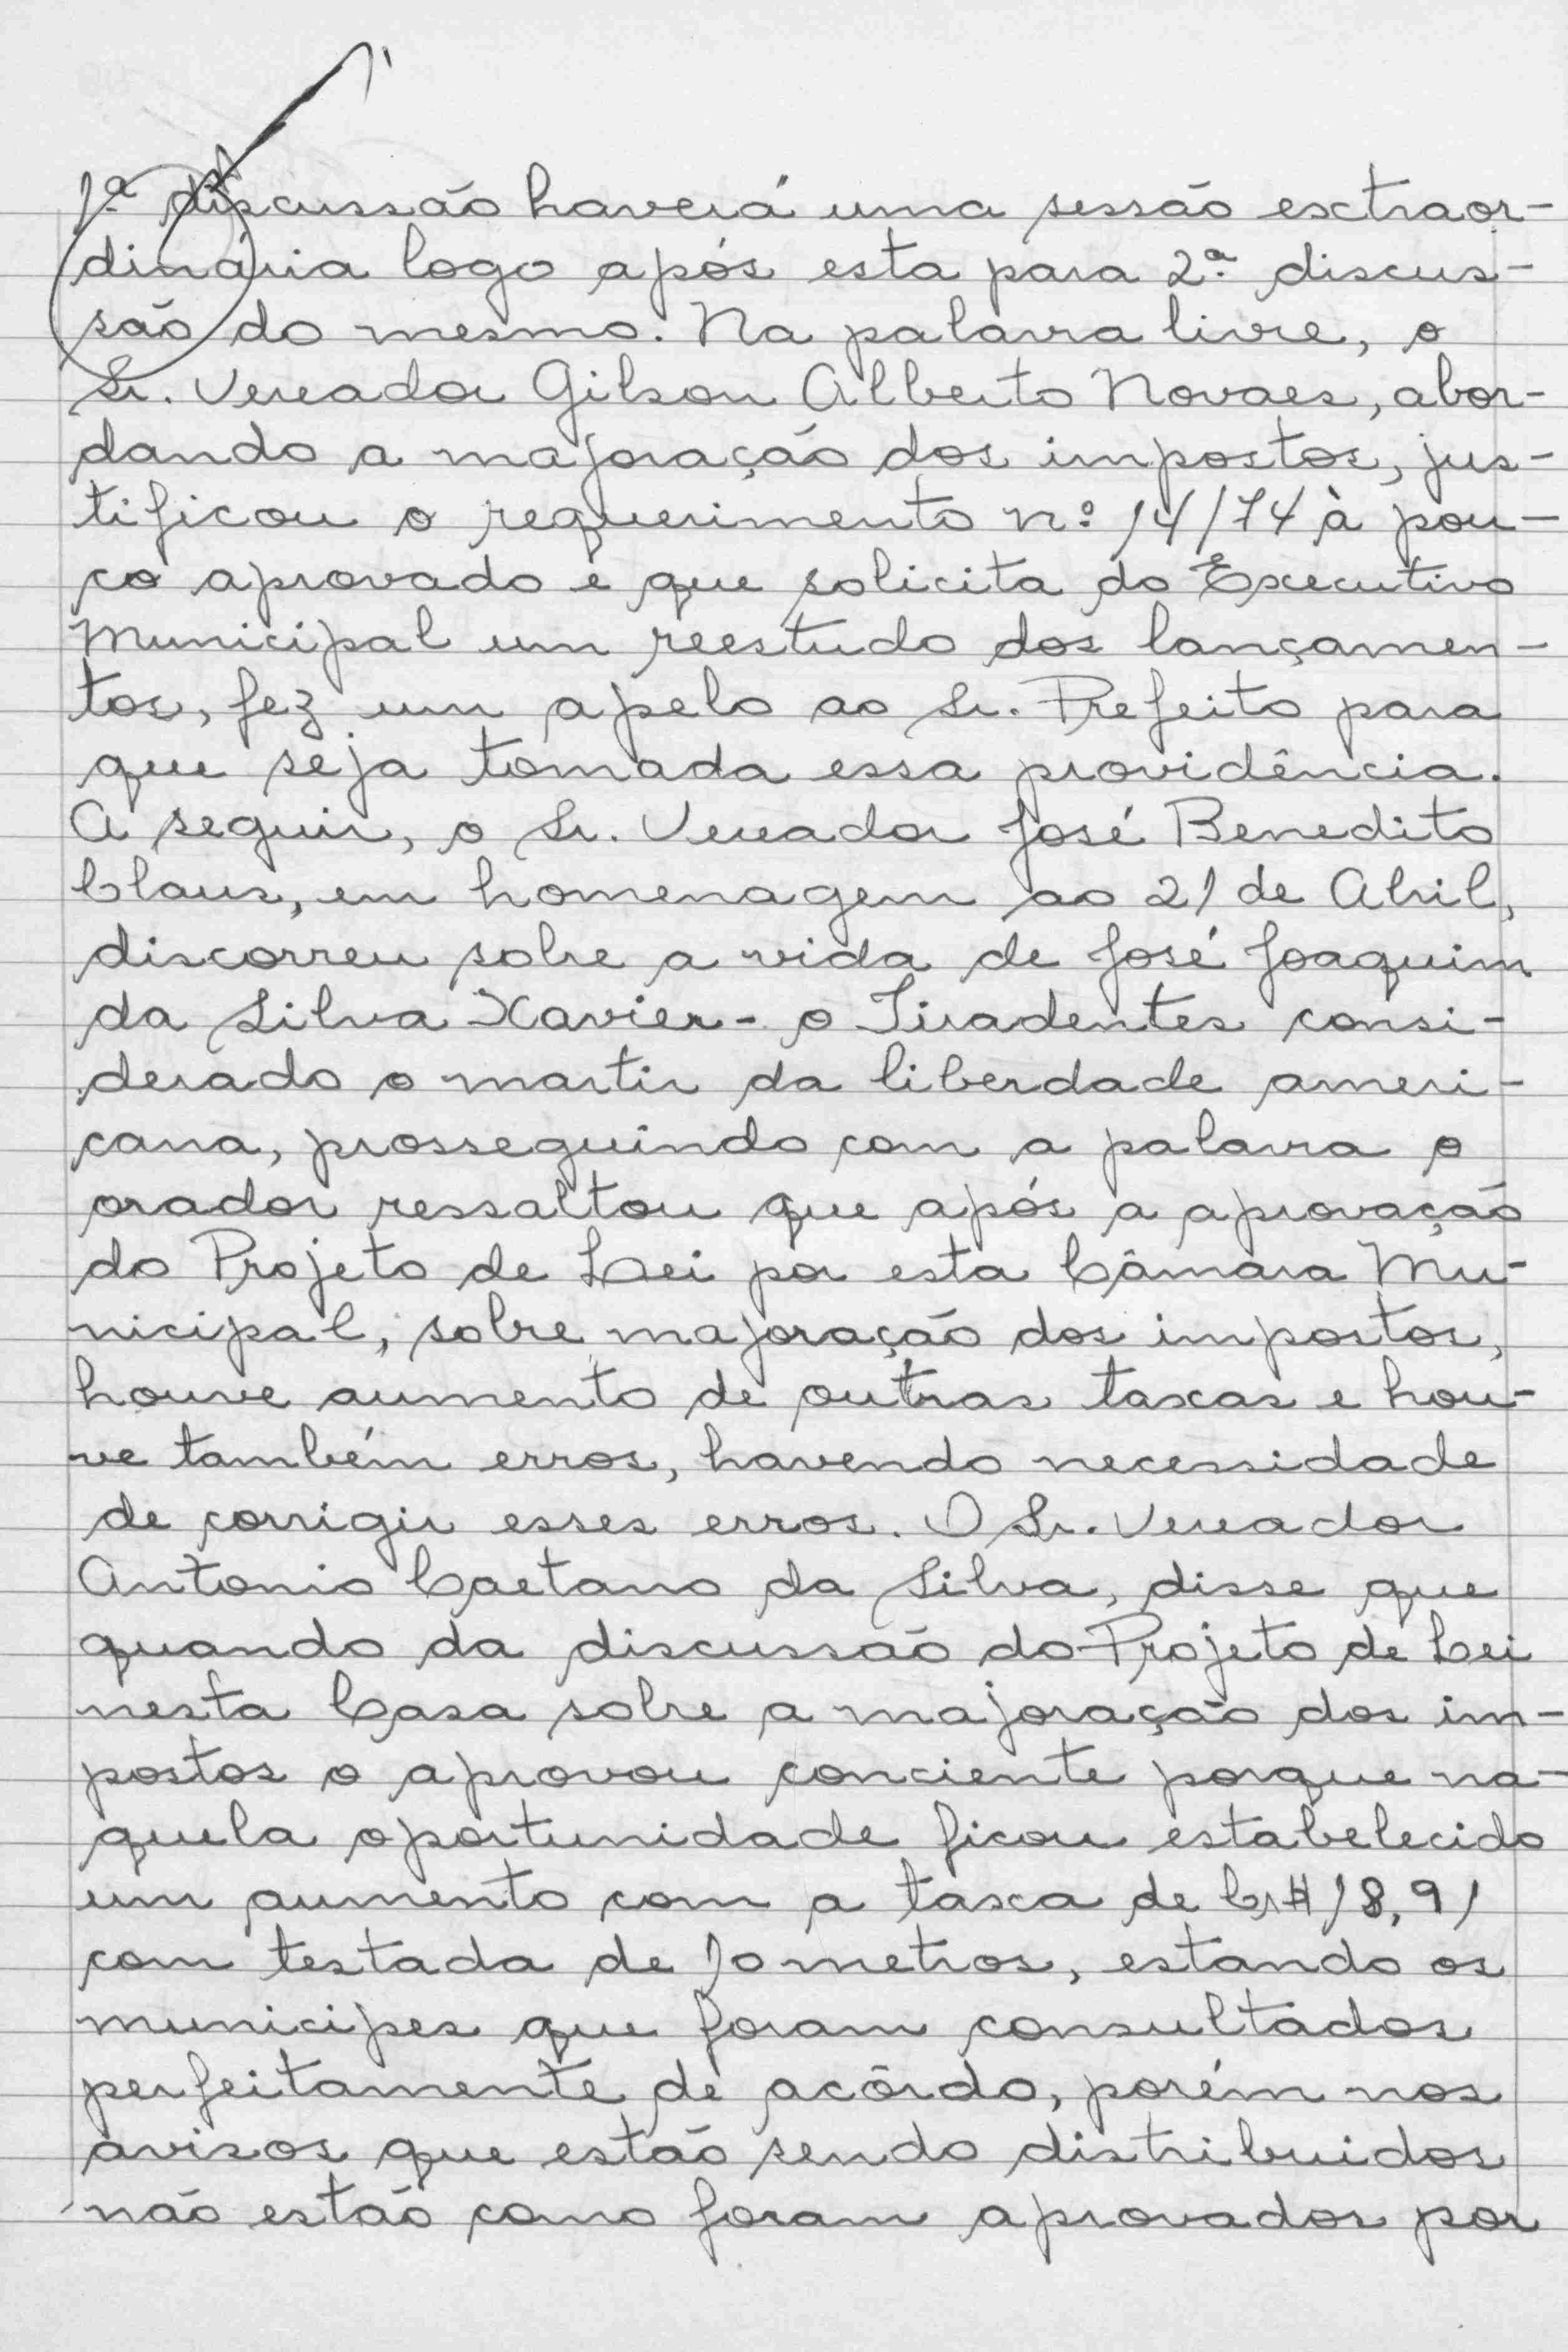 1ª discussão haverá uma sessão extraor-
dinária logo após esta para 2ª discus-
são do mesmo. Na palavra livre, o
Sr. Vereador Gilson Alberto Novaes, abor-
dando a majoração dos impostos, jus-
tificou o requerimento nº 14/74 à pou-
co aprovado e que solicita do Executivo
Municipal um reestudo dos lançamen-
tos, fez um apelo ao Sr. Prefeito para
que seja tomada essa providência.
A seguir, o Sr. Vereador José Benedito
Claus, em homenagem ao 21 de Abril,
discorreu sobre a vida de José Joaquim
da Silva Xavier - o Tiradentes consi-
derado o martir da liberdade ameri-
cana, prosseguindo com a palavra o
orador ressaltou que após a aprovação
do Projeto de Lei por esta Câmara Mu-
nicipal, sobre majoração dos impostos,
houve aumento de outras taxas e hou-
ve também erros, havendo necessidade
de corrigir esses erros. O Sr. Vereador
Antonio Caetano da Silva, disse que
quando da discussão do Projeto de Lei
nesta Casa sobre a majoração dos im-
postos o aprovou conciente porque na-
quela oportunidade ficou estabelecido
um aumento com a taxa de Cr$ 18,91
com testada de 10 metros, estando os
municipes que foram consultados
perfeitamente de acôrdo, porém nos
avisos que estão sendo distribuidos
não estão como foram aprovados por